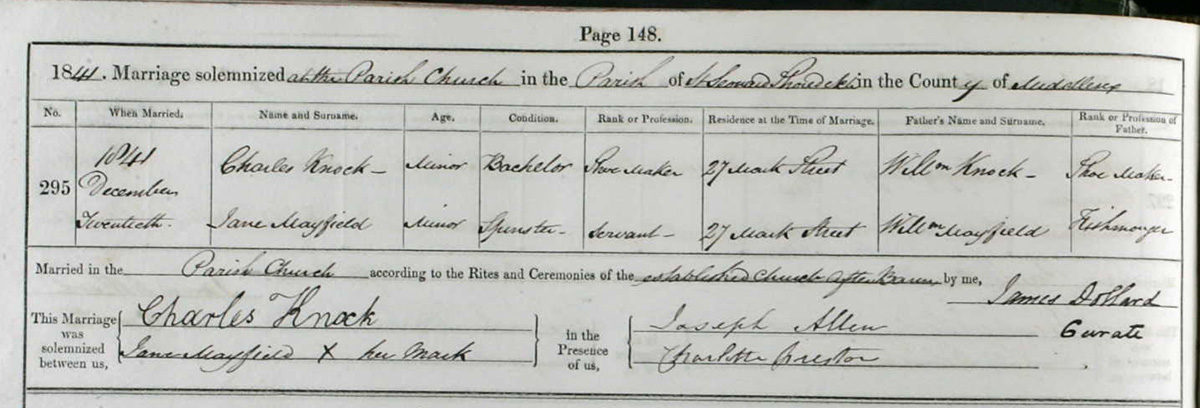 Page 148.
1841. Marriage solemnized at the Parish Church in the Parish of St Leonard Shoreditch in the County of Middlesex
No. When Married. Name and Surname. Age. Condition. Rank or Profession. Residence at the Time of Marriage. Father's Name and Surname. Rank or Profession of Father.
295 1841 December Twentieth. Charles Knock Minor Bachelor Shoe Maker 27 Mark Street Willm Knock Shoe Maker
Jane Mayfield Minor Spinster Servant 27 Mark Street Willm Mayfield Fishmonger
Married in the Parish Church according to the Rites and Ceremonies of the established Church after Banns by me,
James Dollard
Curate
This Marriage was solemnized between us,
Charles Knock
Jane Mayfield X her Mark
in the Presence of us,
Joseph Allen
Charlotte Preston